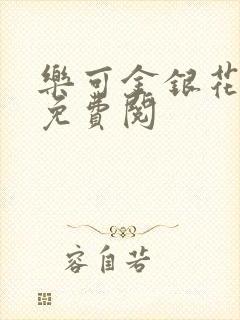 樂可金銀花
免費閱
容自若